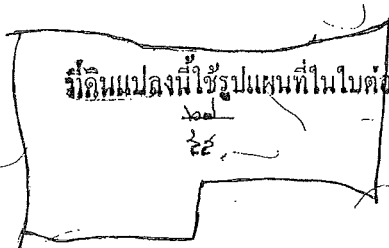 ที่ดินแปลงนี้ใช้รูปแผนที่ในใบต่อ